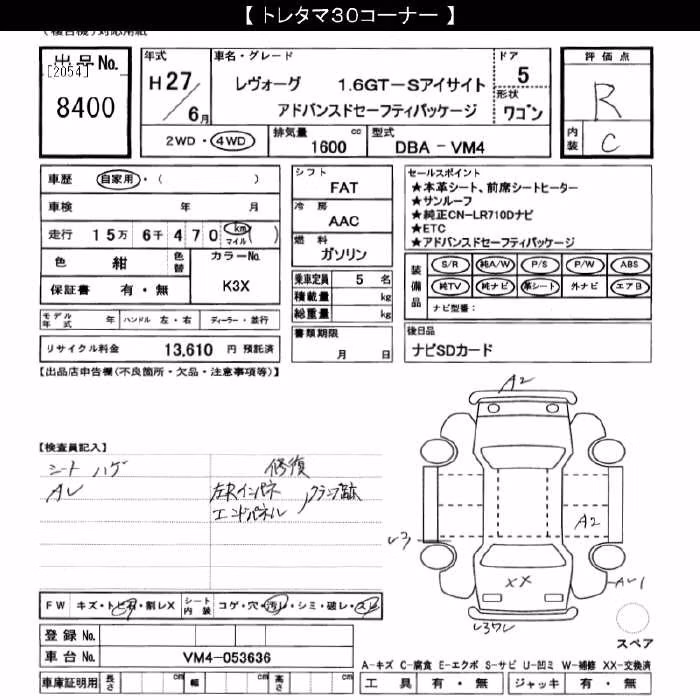 【 トレタマ30コーナー 】
出品No.
[2054]
8400
年式
H27/6月
車名・グレード
レヴォーグ 1.6GT-Sアイサイト
アドバンスドセーフティパッケージ
ドア
5
形状
ワゴン
評価点
R
内装
C
2WD・4WD
排気量 cc
1600
型式
DBA - VM4
車歴 自家用・( )
車検 年 月
走行 15万 6千 470 km マイル )
色 紺
色替
カラーNo.
K3X
保証書 有・無
モデル年式 年 ハンドル 左・右 ディーラー・並行
リサイクル料金 13,610 円 預託済
シフト
FAT
冷房
AAC
燃料
ガソリン
乗車定員 5 名
積載量 kg
総重量 kg
書類期限
月 日
セールスポイント
★本革シート、前席シートヒーター
★サンルーフ
★純正CN-LR710Dナビ
★ETC
★アドバンスドセーフティパッケージ
装備品
S/R 純A/W P/S P/W ABS
純TV 純ナビ 革シート 外ナビ エアB
ナビ型番:
後日品
ナビSDカード
【出品店申告欄(不良箇所・欠品・注意事項等)】
【検査員記入】
シート ハゲ
修復
左Rインパネ クランプ跡
エンドパネル
A2
A2
XX
FW キズ・トビ石・割レX シート内装 コゲ・穴・汚レ・シミ・破レ・スレ
登録No.
車台No. VM4-053636
車庫証明用 長さ cm 幅 cm 高さ cm
スペア
A-キズ C-腐食 E-エクボ S-サビ U-凹ミ W-補修 XX-交換済
工具 有・無 ジャッキ 有・無